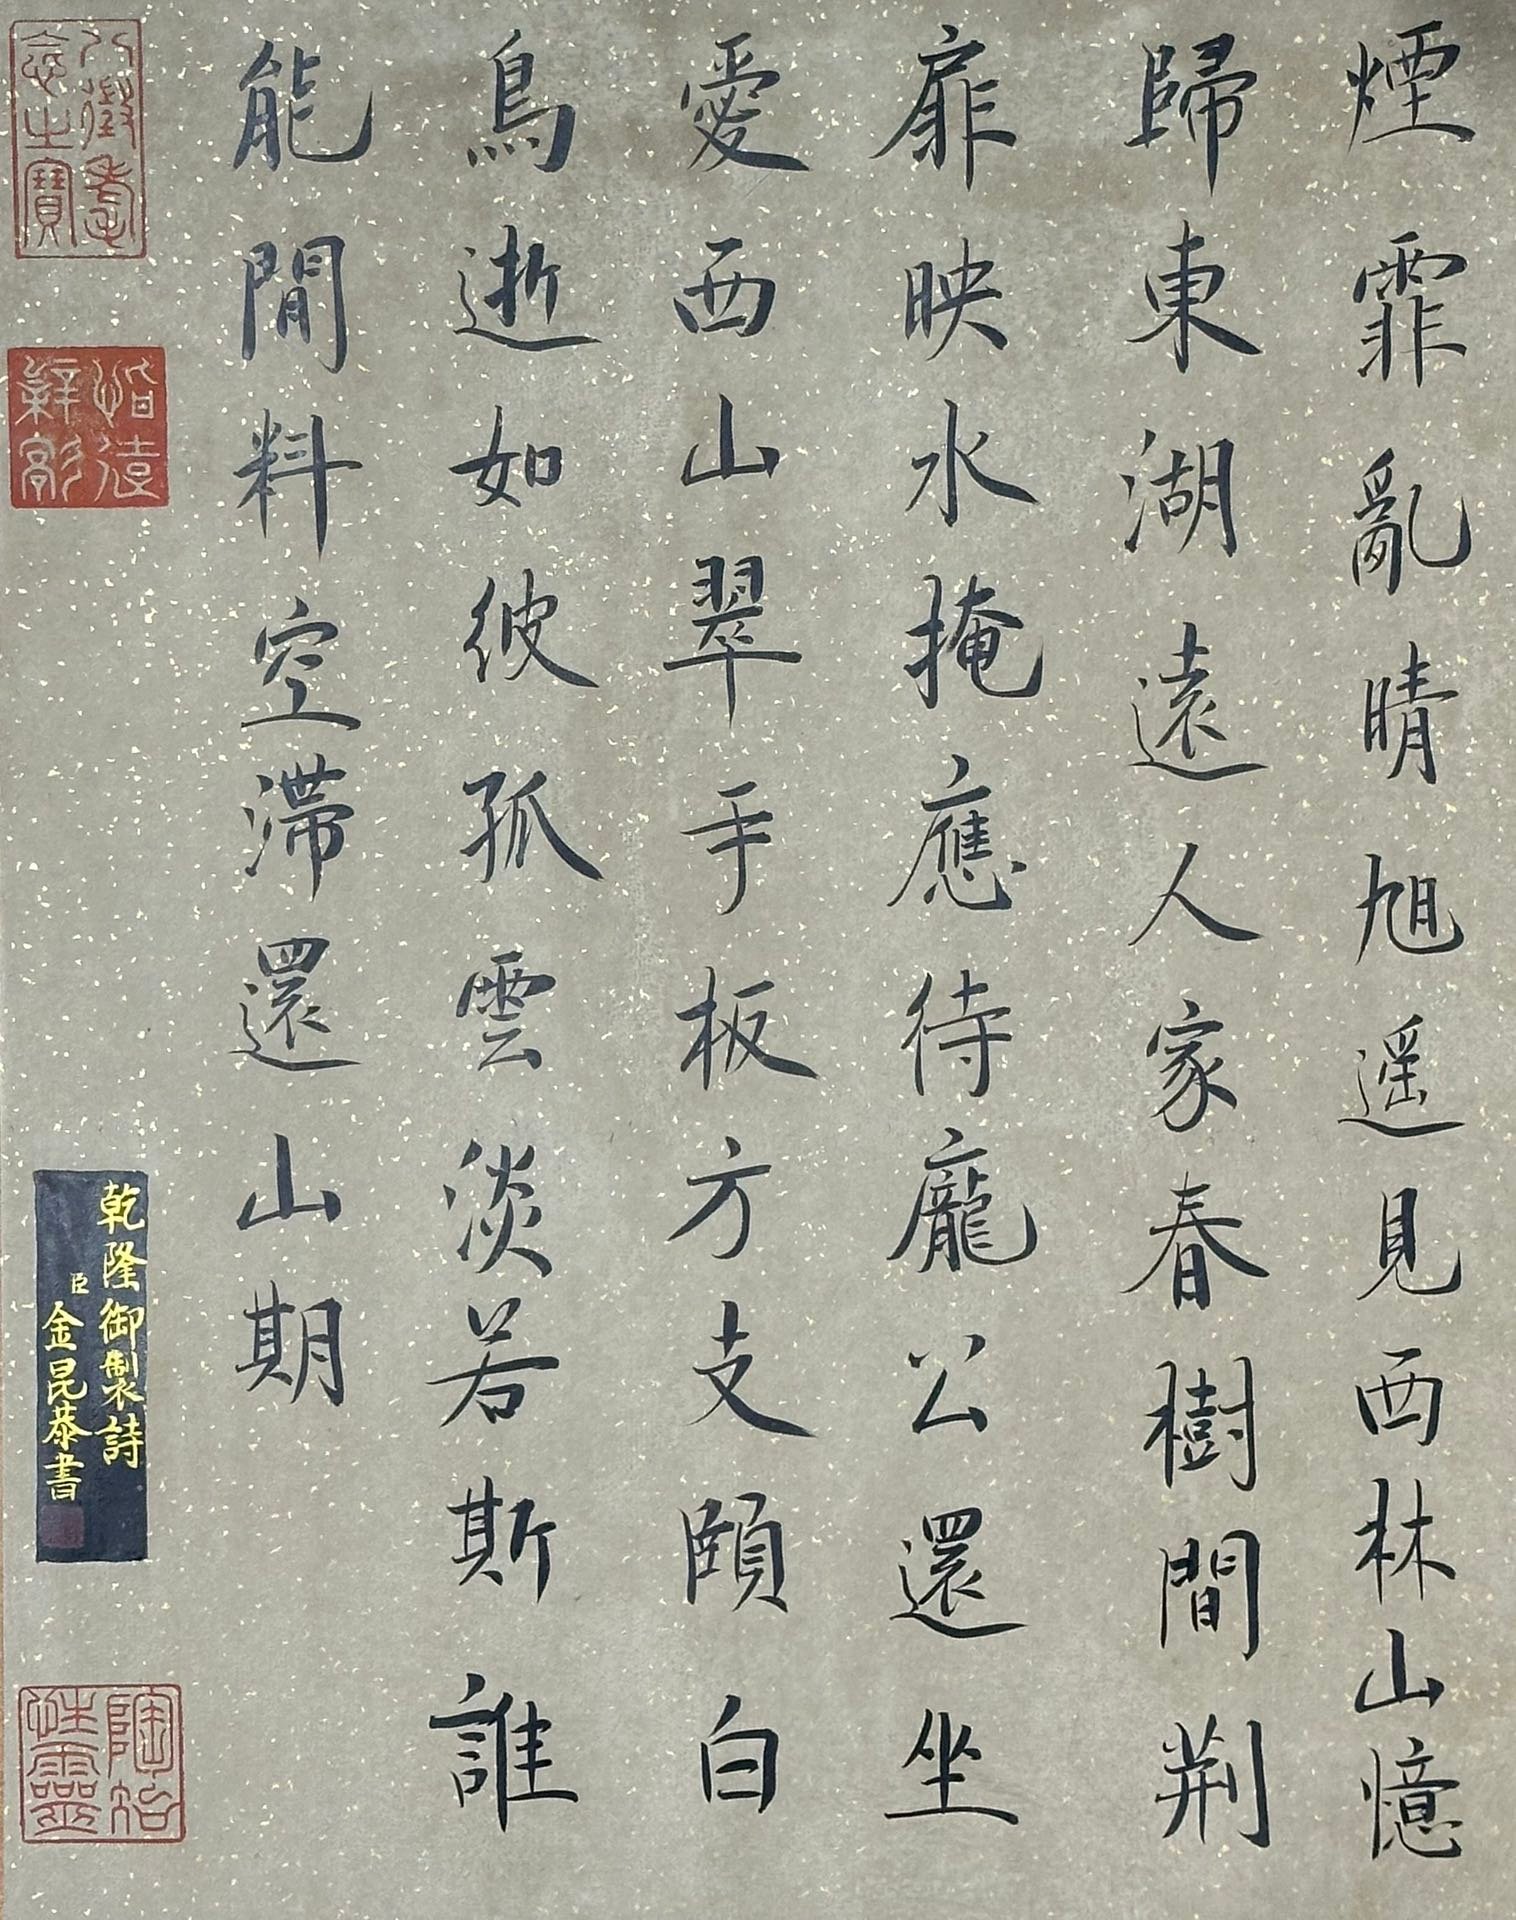 煙霏亂晴旭遥見西林山憶
歸東湖遠人家春樹間荆
扉映水掩應待龐公還坐
愛西山翠手板方支頤白
鳥逝如彼孤雲淡若斯誰
能閒料空滯還山期
八徵耄念之寶
乾隆御製詩
臣金昆恭書
陶冶性靈